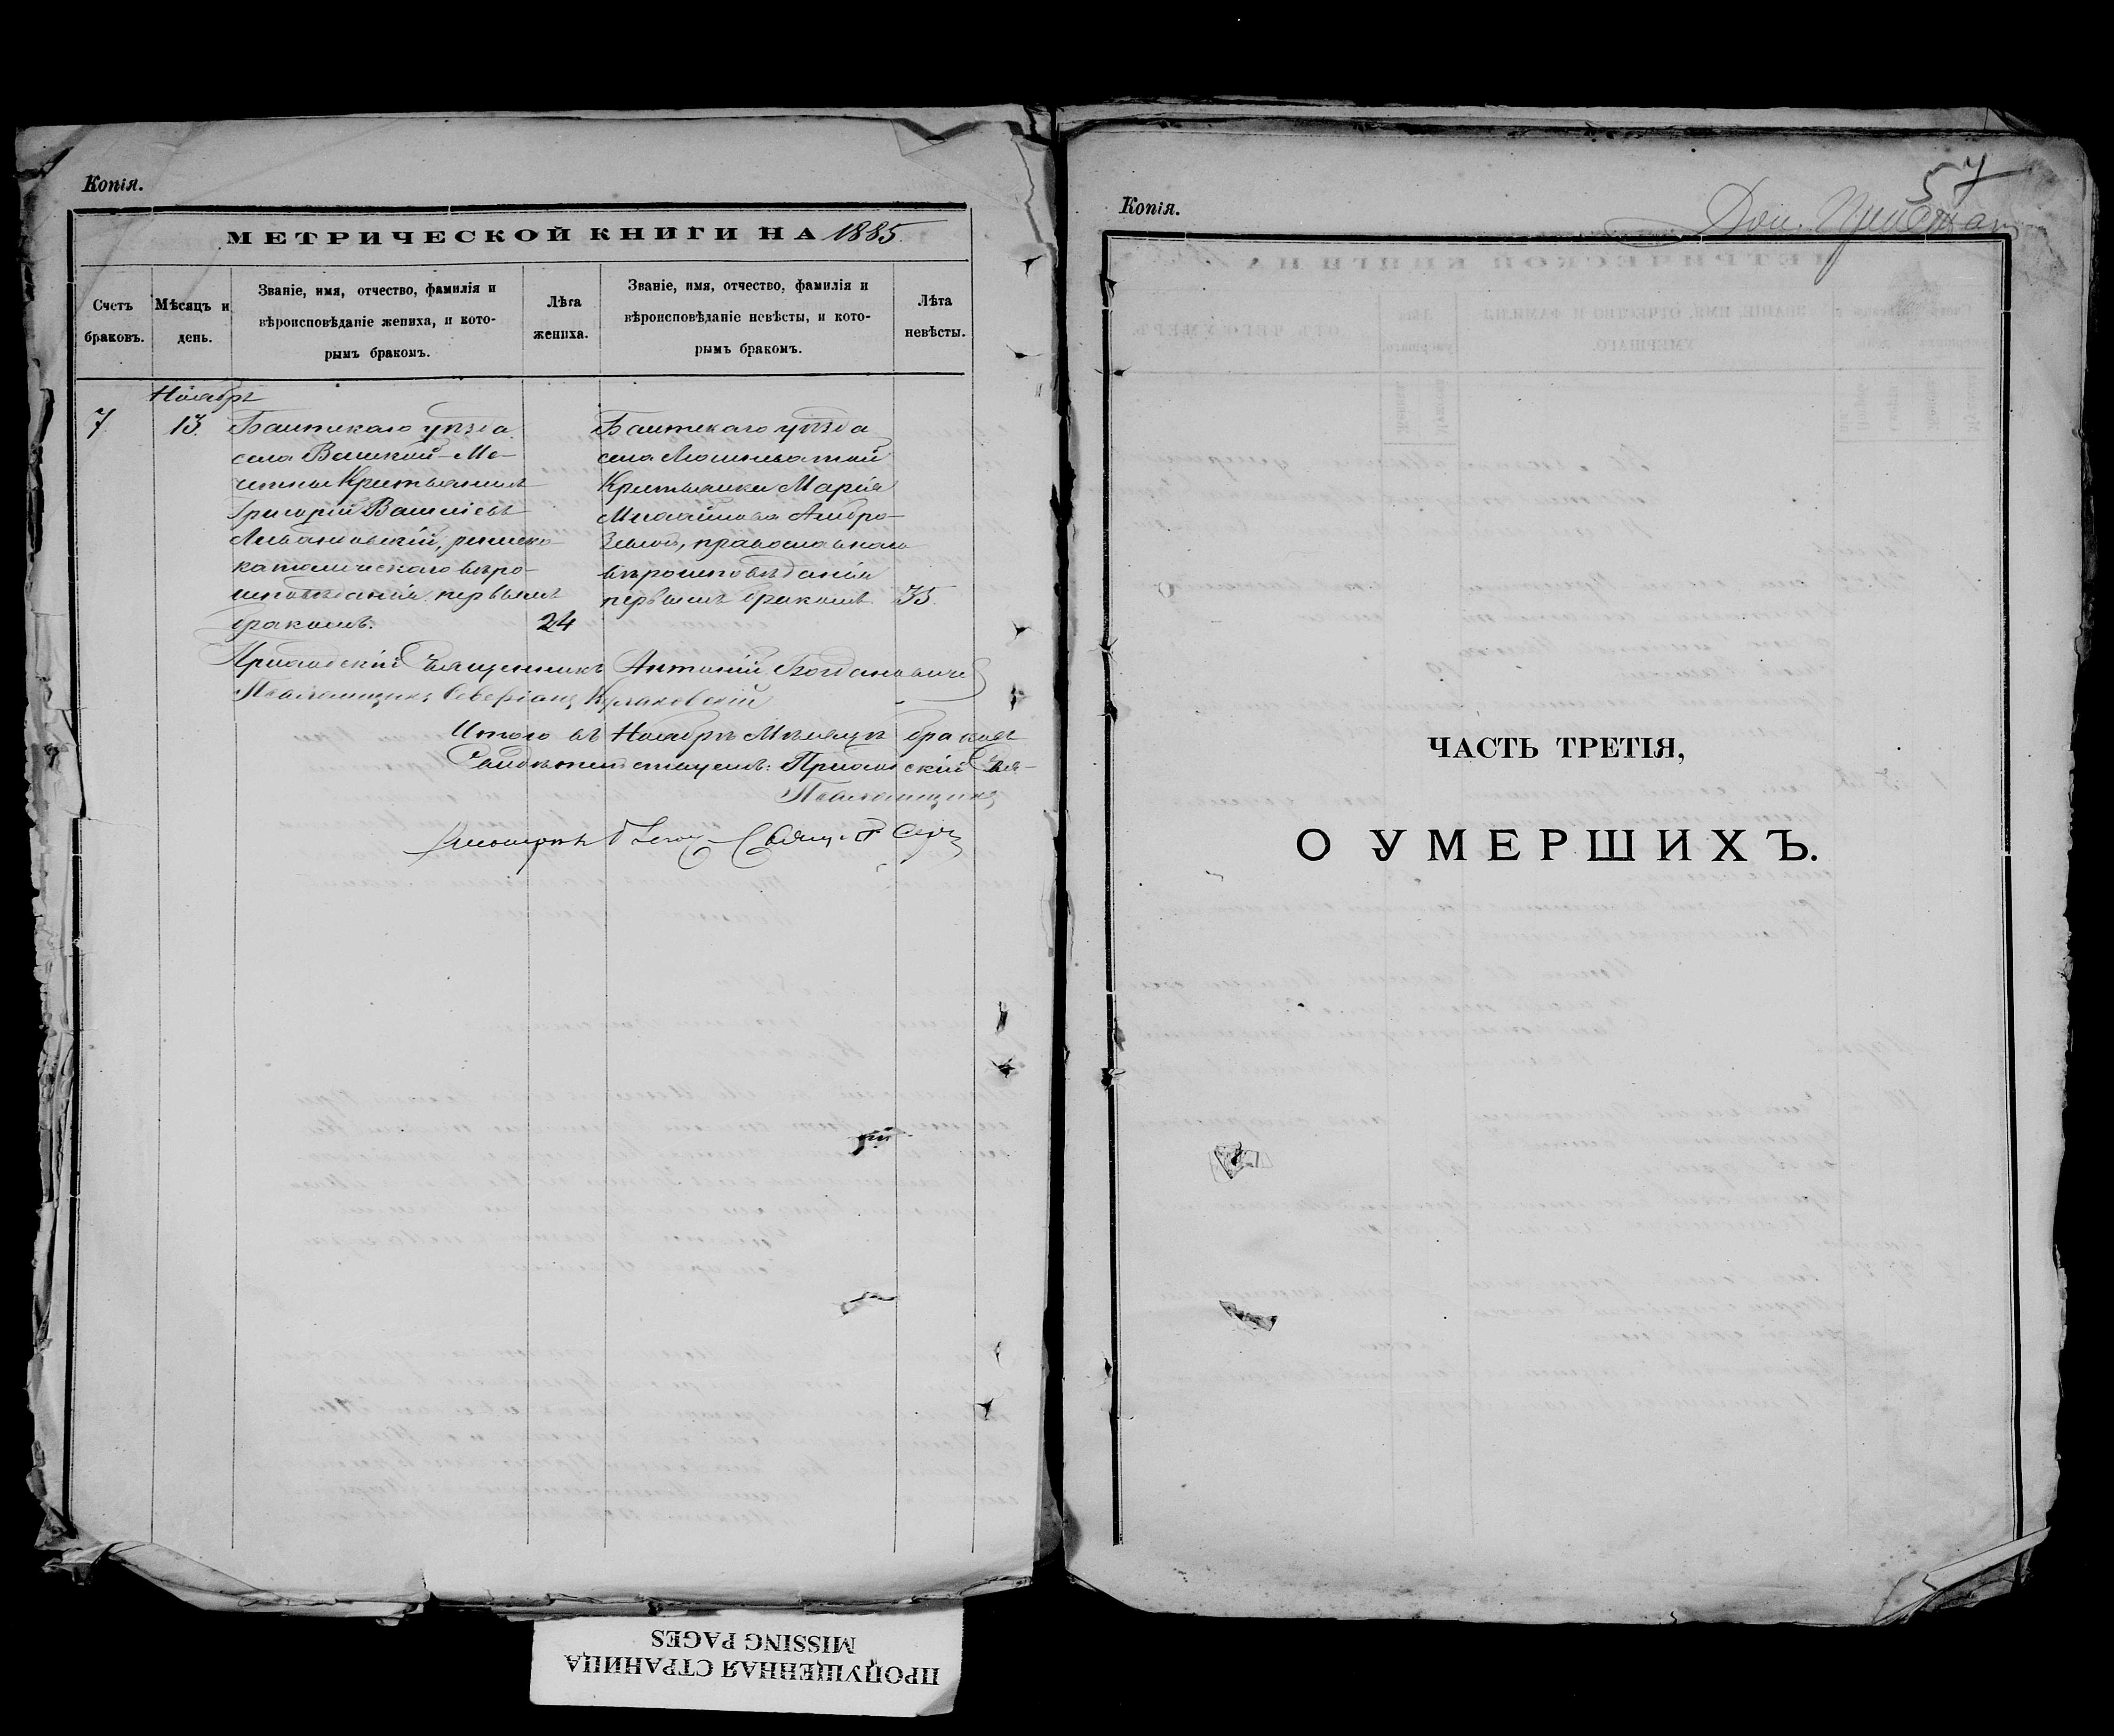 Копія.
МЕТРИЧЕСКОЙ КНИГИ НА 1885.
Счетъ браковъ.
Мѣсяцъ и день.
Званіе, имя, отчество, фамилія и
вѣроисповѣданіе жениха, и кото-
рымъ бракомъ.
Лѣта жениха.
Званіе, имя, отчество, фамилія и
вѣроисповѣданіе невѣсты, и кото-
рымъ бракомъ.
Лѣта невѣсты.
Ноябрь
7
13.
Балтскаго уѣзда
села Великой-Ме-
четни Крестьянинъ
Григорій Василіевъ
римско-
католическаго вѣро-
исповѣданія, первымъ
бракомъ.
24
Балтскаго уѣзда
села
Крестьянка Марія
Михайлова Амбро-
православнаго
вѣроисповѣданія
первымъ бракомъ.
35.
Приходскій Священникъ Антоній Богдановичъ
Псаломщикъ Северіанъ Кулаковскій
Итого въ Ноябрѣ Мѣсяцѣ браковъ
Свидѣтельствуемъ: Приходскій Свя-
Псаломщикъ
Копія.
57
ЧАСТЬ ТРЕТІЯ,
О УМЕРШИХЪ.
ПРОПУЩЕННАЯ СТРАНИЦА
MISSING PAGES